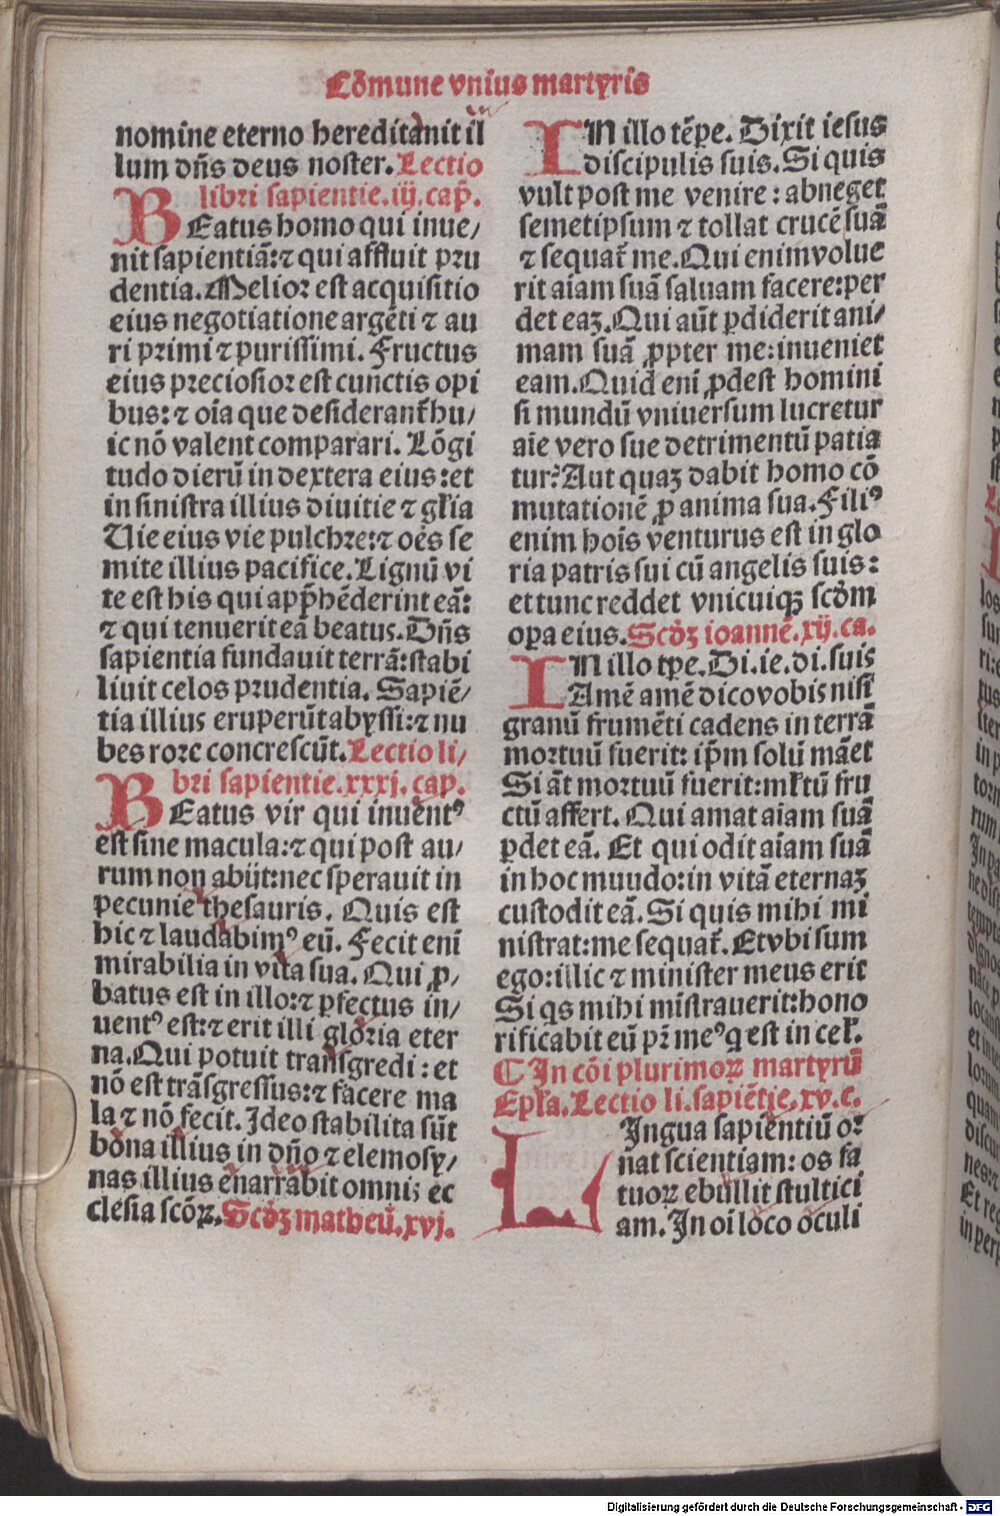 Cōmune vnius martyris
nomine eterno hereditanit il
lum dn̄s deus noster. Lectio
libri sapientie. iij. cap̄.
BEatus homo qui inue/
nit sapientiā: ⁊ qui affluit pru
dentia. Melior est acquisitio
eius negotiatione argēti ⁊ au
ri primi ⁊ purissimi. Fructus
eius preciosior est cunctis opi
bus: ⁊ oīa que desiderant᷑ hu/
ic nō valent comparari. Lōgi
tudo dierū in dextera eius: et
in sinistra illius diuitie ⁊ gl̄ia
Uie eius vie pulchre: ⁊ oēs se
mite illius pacifice. Lignū vi
te est his qui app̄hēderint eā:
⁊ qui tenuerit eā beatus. Dn̄s
sapientia fundauit terrā: stabi
liuit celos prudentia. Sapiē/
tia illius eruperūt abyssi: ⁊ nu
bes rore concrescūt. Lectio li/
bri sapientie. xxxj. cap.
BEatus vir qui inuentꝰ
est sine macula: ⁊ qui post au/
rum non abijt: nec sperauit in
pecunie thesauris. Quis est
hic ⁊ laudabimꝰ eū. Fecit enī
mirabilia in vita sua. Qui ꝓ/
batus est in illo: ⁊ ꝑfectus in/
uentꝰ est: ⁊ erit illi gloria eter
na. Qui potuit transgredi: et
nō est trāsgressus: ⁊ facere ma
la ⁊ nō fecit. Ideo stabilita sūt
bona illius in dn̄o ⁊ elemosy/
nas illius enarrabit omnis ec
clesia scōꝝ. Scd̄ꝫ matheū. xvj.
IN illo tēpe. Dixit iesus
discipulis suis. Si quis
vult post me venire: abneget
semetipsum ⁊ tollat crucē suā
⁊ sequat᷑ me. Qui enim volue
rit aīam suā saluam facere: per
det eaꝫ. Qui aūt ꝑdiderit ani/
mam suā ꝓpter me: inueniet
eam. Quid enī ꝓdest homini
si mundū vniuersum lucretur
aīe vero sue detrimentū patia
tur? Aut quaꝫ dabit homo cō
mutationē ꝓ anima sua. Filiꝰ
enim hoīs venturus est in glo
ria patris sui cū angelis suis:
et tunc reddet vnicuiqꝫ scd̄m
opa eius. Scd̄ꝫ ioannē. xij. ca.
IN illo tꝑe. Di. ie. di. suis
Amē amē dico vobis nisi
granū frumēti cadens in terrā
mortuū fuerit: ip̄m solū māet
Si āt mortuū fuerit: ml̄tū fru
ctū affert. Qui amat aīam suā
ꝑdet eā. Et qui odit aīam suā
in hoc muudo: in vitā eternaꝫ
custodit eā. Si quis mihi mi
nistrat: me sequat᷑. Et vbi sum
ego: illic ⁊ minister meus erit
Si qs mihi mīstrauerit: hono
rificabit eū pr̄ meꝰ q est in cel̄.
¶ In cōi plurimoꝝ martyrū
Epl̄a. Lectio li. sapiētie. xv. c.
LIngua sapientiū or
nat scientiam: os fa
tuoꝝ ebullit stultici
am. In oī loco oculi
Digitalisierung gefördert durch die Deutsche Forschungsgemeinschaft - DFG